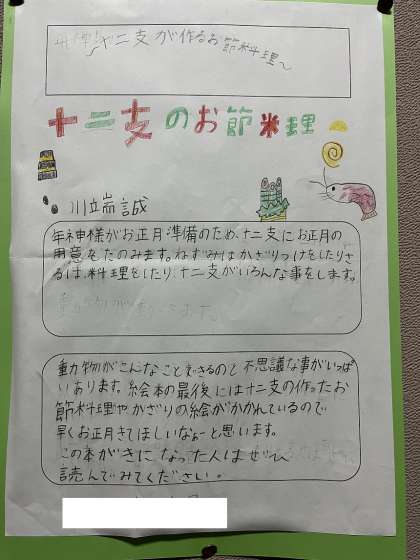 十二支が作るお節料理～
十二支のお節料理
川端誠
年神様がお正月準備のため、十二支にお正月の
用意をたのみます。ねずみはかざりつけをしたりさ
るは、料理をしたり、十二支がいろんな事をします。
動物がこんなことできるのと不思議な事がいっぱ
いあります。絵本の最後には十二支の作ったお
節料理やかざりの絵がかかれているので
早くお正月きてほしいなぁーと思います。
この本がきになった人はぜひ
読んでみてください。